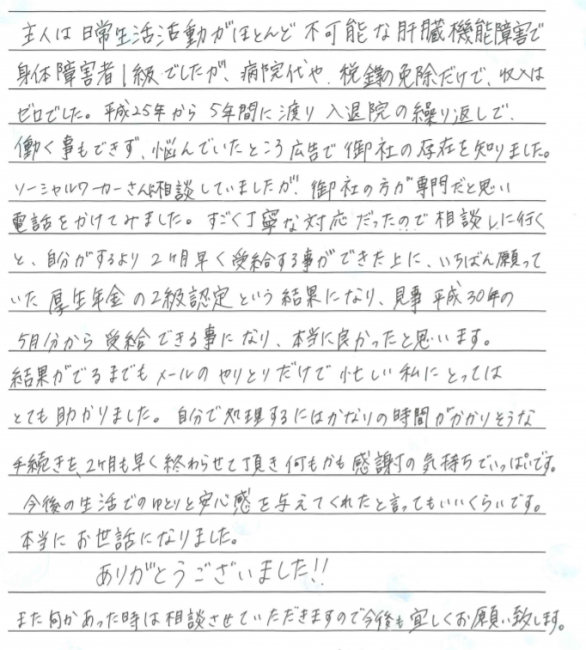 主人は日常生活活動がほとんど不可能な肝臓機能障害で
身体障害者1級でしたが、病院代や、税錢の免除だけで、収入は
ゼロでした。平成25年から5年間に渡り入退院の繰り返しで、
働く事もできず、悩んでいたところ広告で御社の存在を知りました。
ソーシャルワーカーさんに相談していましたが、御社の方が専門だと思い
電話をかけてみました。すごく丁寧な対応だったので相談しに行く
と、自分がするより2ヶ月早く受給する事ができた上に、いちばん願って
いた厚生年金の2級認定という結果になり、見事平成30年の
5月分から受給できる事になり、本当に良かったと思います。
結果がでるまでもメールのやりとりだけで忙しい私にとっては
とても助かりました。自分で処理するにはかなりの時間がかかりそうな
手続きを、2ヶ月も早く終わらせて頂き何もかも感謝の気持ちでいっぱいです。
今後の生活でのゆとりと安心感を与えてくれたと言ってもいいくらいです。
本当にお世話になりました。
ありがとうございました!!
また何かあった時は相談させていただきますので今後も宜しくお願い致します。